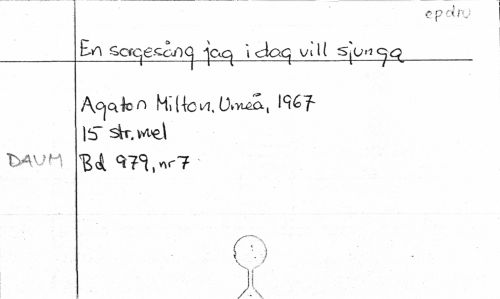 epdru
En sorgesång jag i dag vill sjunga
Agaton Milton, Umeå, 1967
15 str. mel
DAUM Bd 979, nr 7